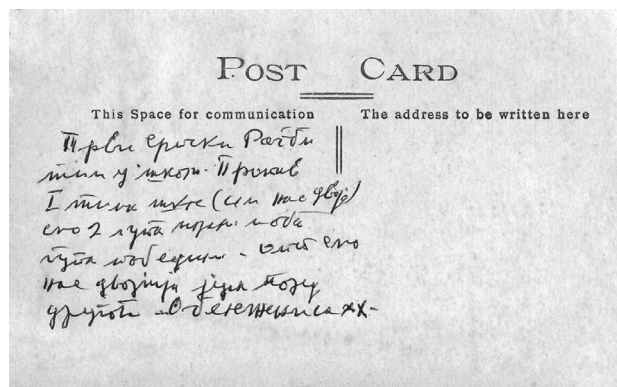 POST CARD
This Space for communication
The address to be written here
Први Српски Рагби
тим у школи. Против
I тима (нас двоје)
смо 2 пута оба
пута победили - Опет смо
нас двојица један поред
другога - Обележени са xx-